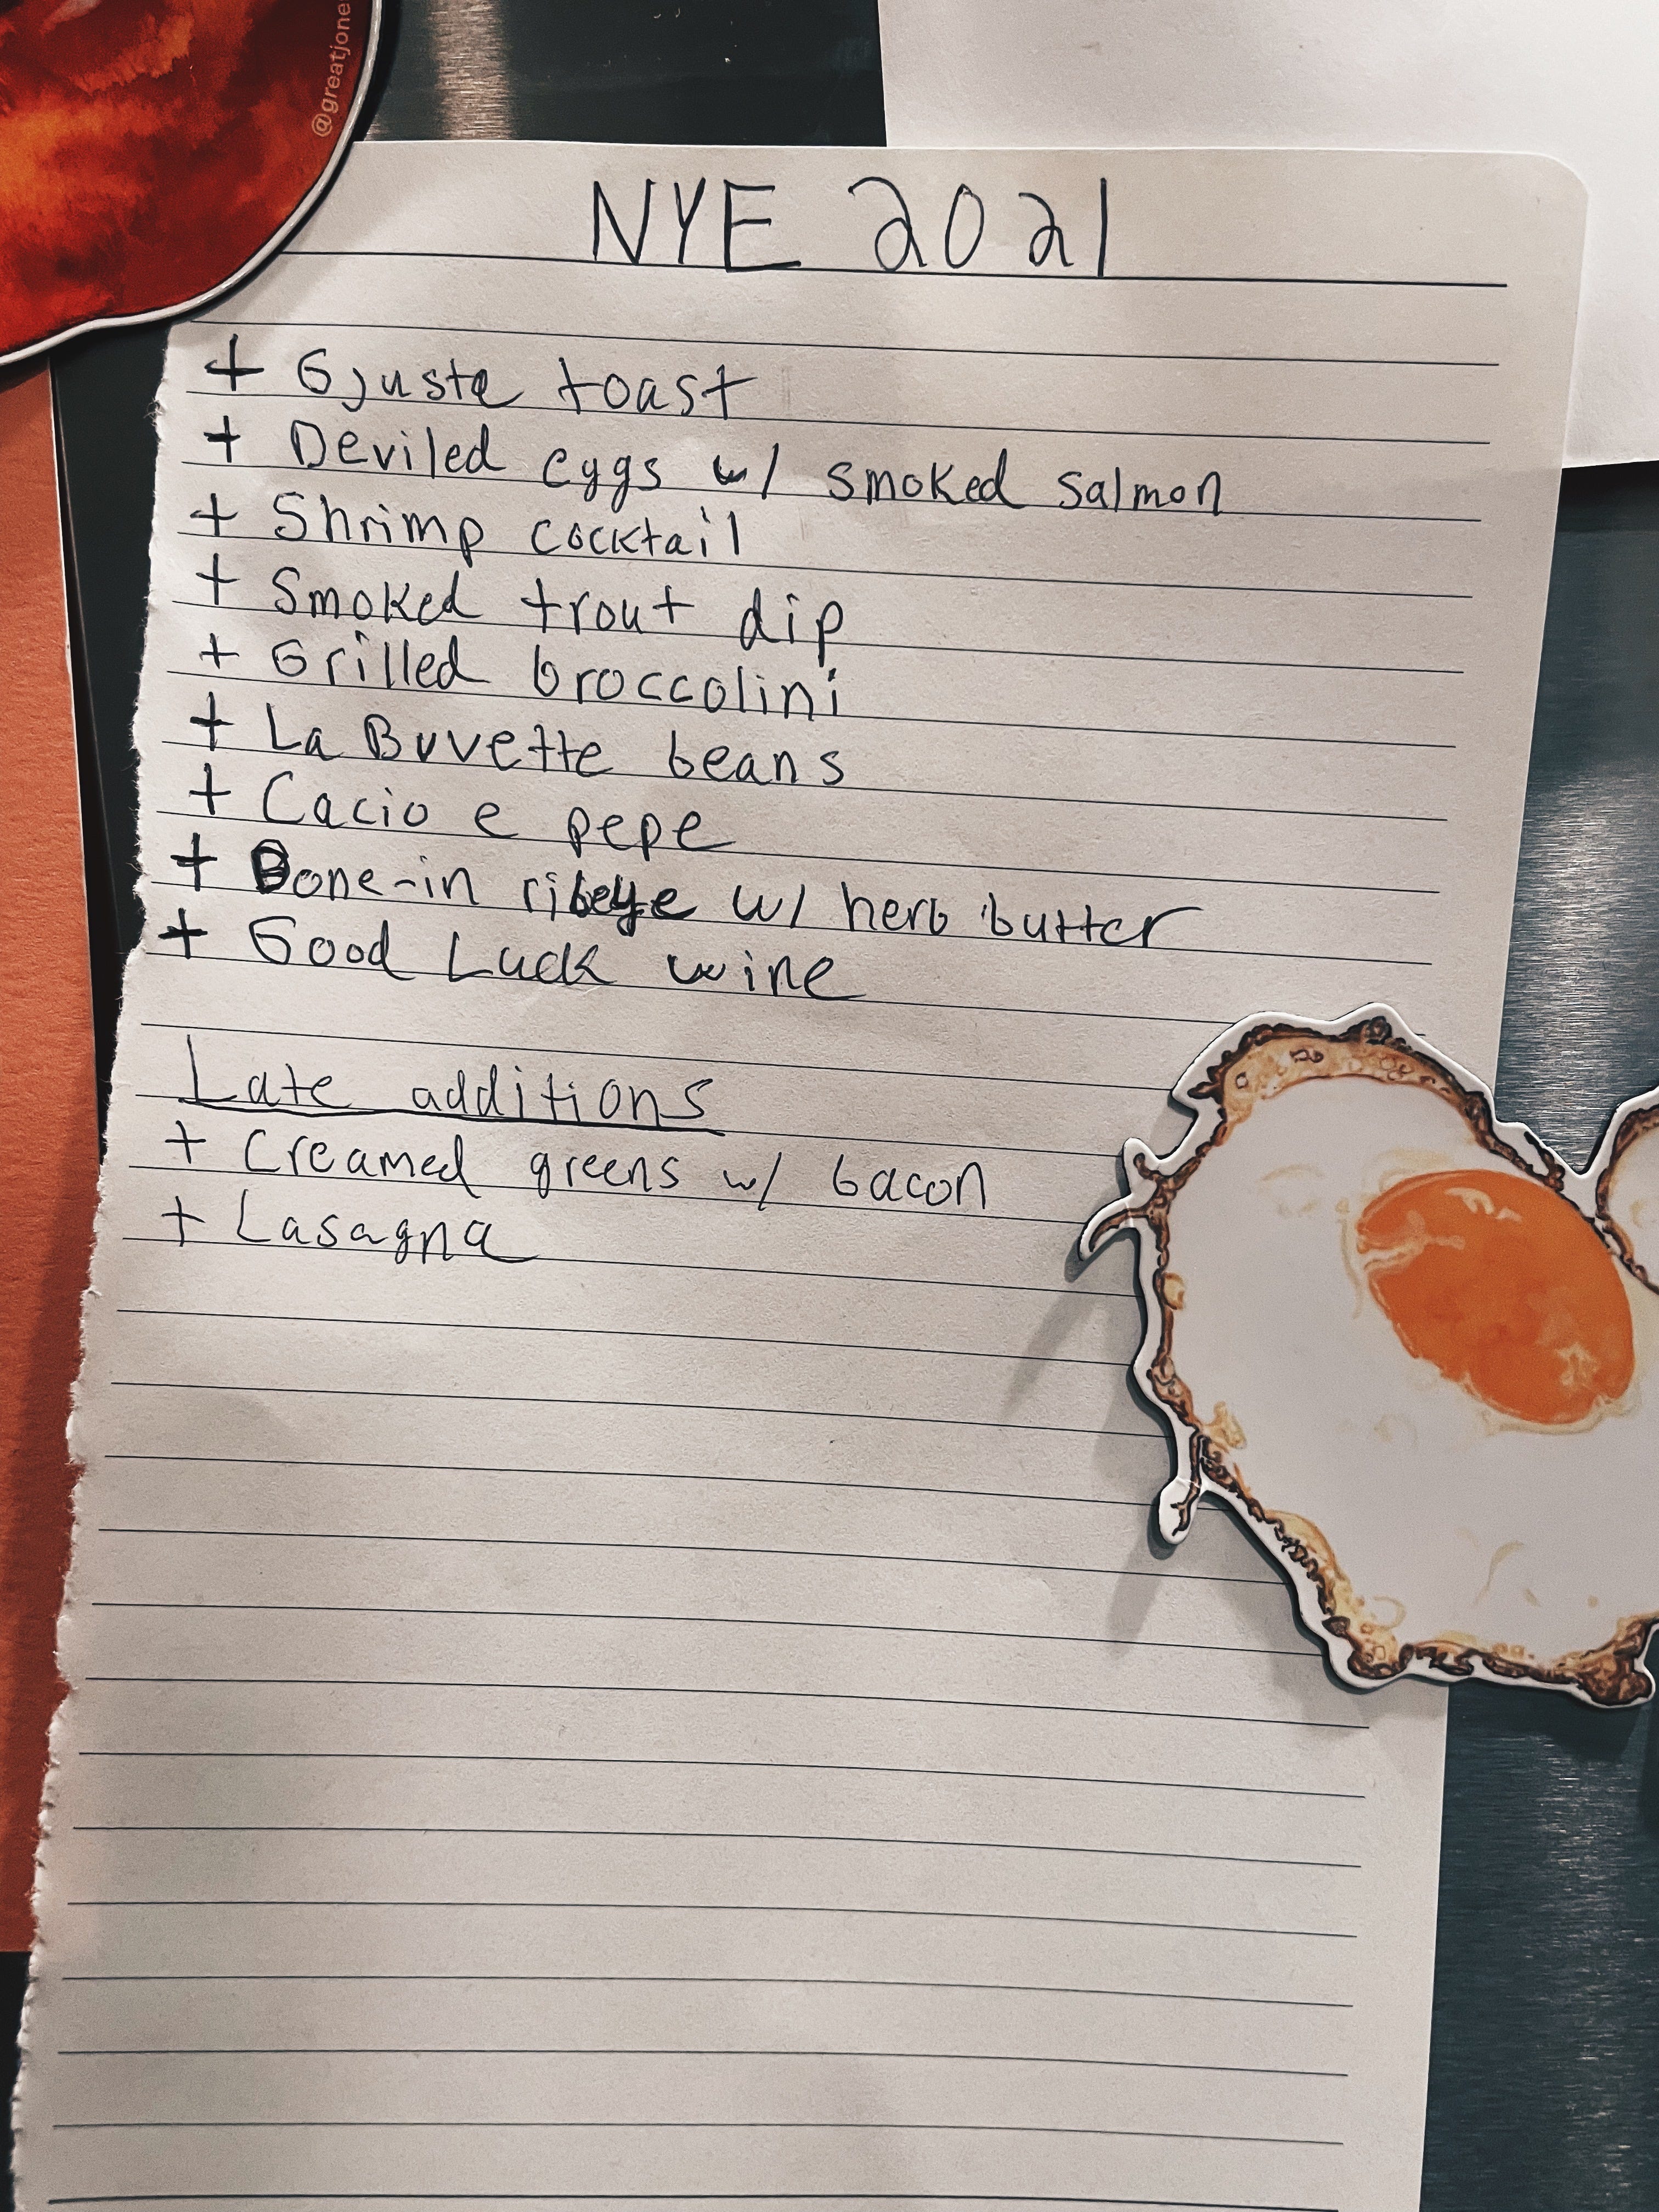 @greatjone
NYE 2021
+ Gjusta toast
+ Deviled eggs w/ smoked salmon
+ Shrimp cocktail
+ Smoked trout dip
+ Grilled broccolini
+ La Buvette beans
+ Cacio e pepe
+ Bone-in ribeye w/ herb butter
+ Good Luck wine
Late additions
+ Creamed greens w/ bacon
+ Lasagna